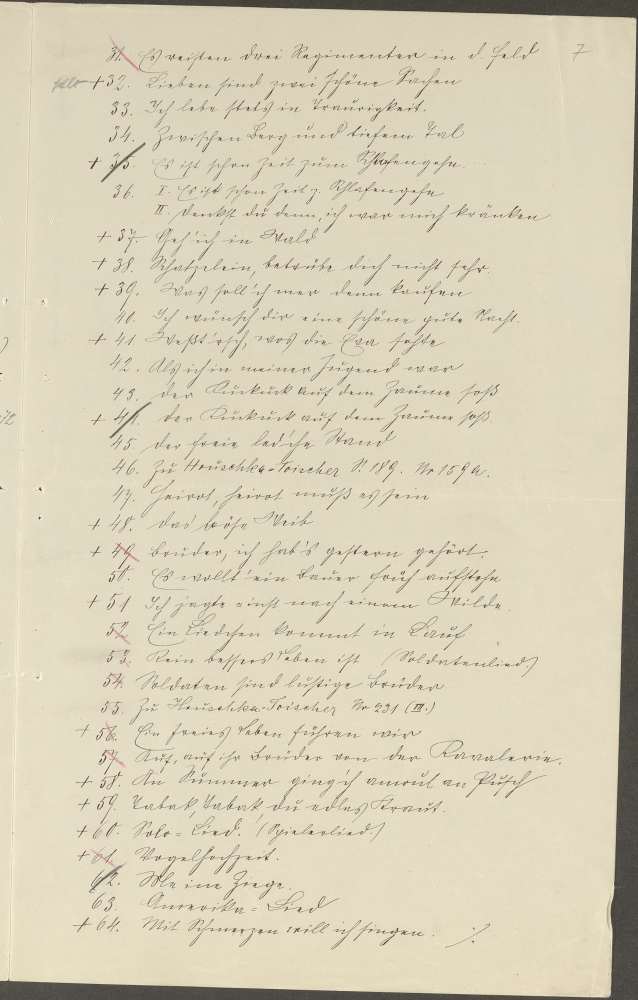 7
31. Es reisten drei Regimenter in d. Feld
+ 32. Lieben sind zwei schöne Sachen
33. Ich lebe stets in Traurigkeit.
34. Zwischen Berg und tiefem Tal
+ 35. Es ist schon Zeit zum Schlafengehn...
36. I. Es ist schon Zeit z. Schlafengehn
II. Denkst du denn, ich war mich kränken
+ 37. Geh' ich in Wald
+ 38. Schatzelein, betrübe dich nicht sehr.
+ 39. Was soll ich mer denn kaufen
40. Ich wünsch dir eine schöne gute Nacht.
+ 41 wos die Eva sohte
42. Als ich in meiner Jugend war
43. Der Kuckuck auf dem Zaume saß
+ 44. Der Kuckuck auf dem Zaume saß.
45. Der freie led'che Stand
46. Zu Hruschka-Toischer S. 189. No 159 a.
47. Heirat, heirat muß es sein
+ 48. Das böse Weib
+ 49. Brüder, ich hab's gestern gehört.
50. Es wollt' ein Bauer früh aufstehn
+ 51 Ich jagte einst nach einem Wilde.
52. Ein Liedchen kommt in Lauf
53. Kein bessers Leben ist (Soldatenlied.)
54. Soldaten sind lustige Brüder
55. Zu Hruschka-Toischer No 231 (III.)
+ 56. Ein freies Leben führen wir
57. Auf, auf ihr Brüder von der Kavalerie.
+ 58. An Summer ging ich amoul an Pusch
+ 59. Tabak, Tabak, du edles Kraut.
+ 60. Solo-Lied. (Spielerlied.)
+ 61. Vogelhochzeit.
62. Meine Ziege.
63. Amerika-Lied
+ 64. Mit Schmerzen will ich singen. ·/.